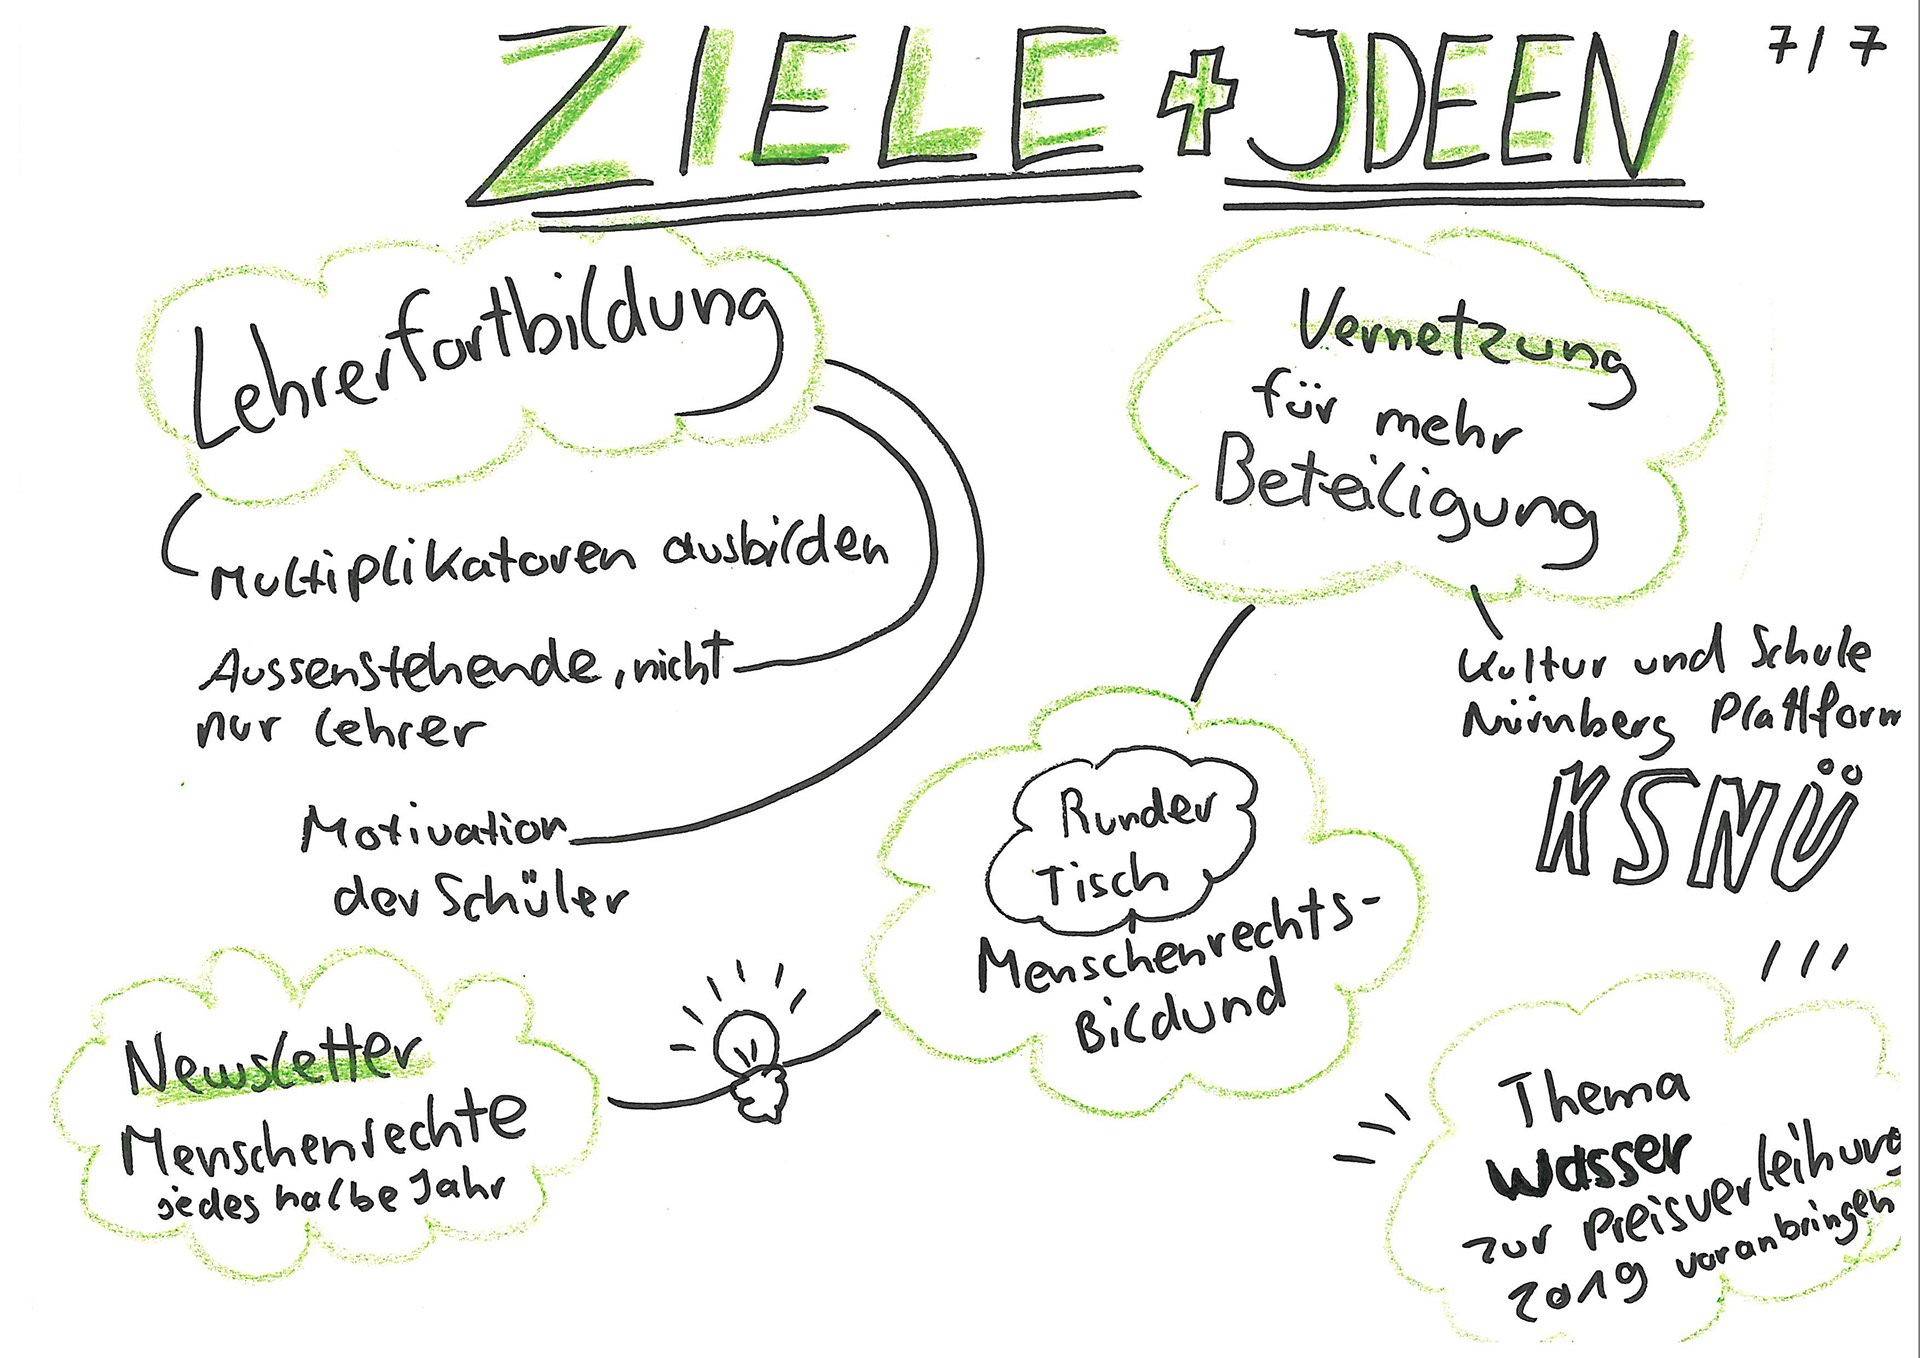 ZIELE + JDEEN
7/7
Lehrerfortbildung
Multiplikatoren ausbilden
Aussenstehende, nicht
nur Lehrer
Motivation
der Schüler
Vernetzung
für mehr
Beteiligung
Kultur und Schule
Nürnberg Plattform
KSNÜ
Runder
Tisch
Menschenrechts-
Bildund
Newsletter
Menschenrechte
jedes halbe Jahr
Thema
Wasser
zur Preisverleihung
2019 voranbringen